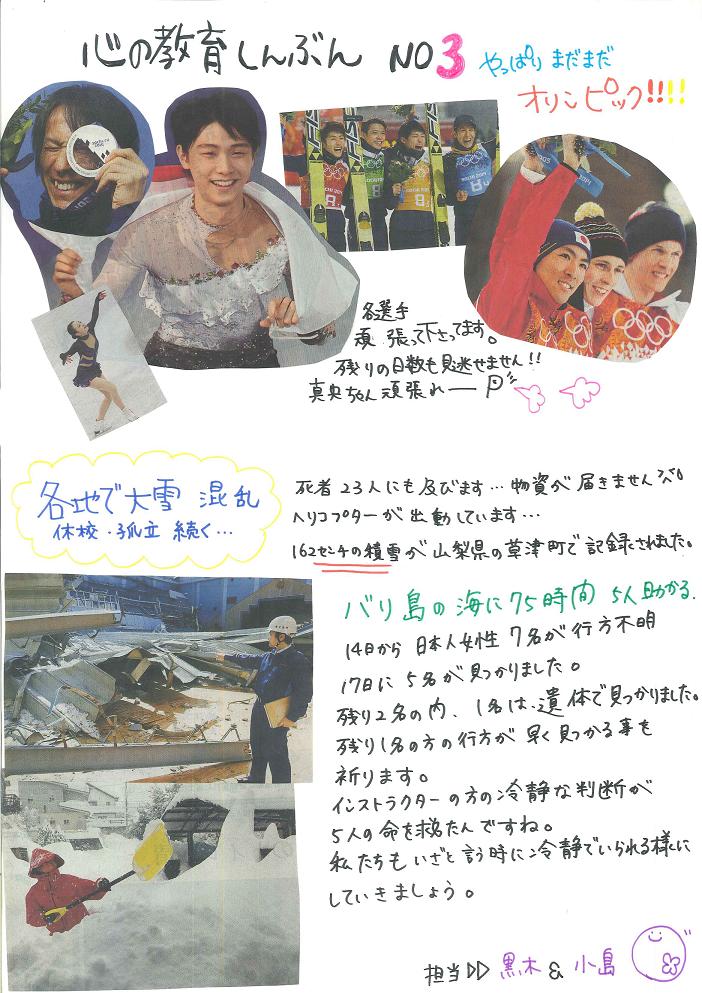 心の教育しんぶん NO3
やっぱり まだまだ
オリンピック!!!!
各選手
頑張って下さってます。
残りの日数も見逃せません!!
真央ちゃん頑張れー
各地で大雪 混乱
休校・孤立 続く…
死者23人にも及びます…物資が届きません
ヘリコプターが出動しています…
162センチの積雪が山梨県の草津町で記録されました。
バリ島の海に75時間 5人助かる.
14日から日本人女性7名が行方不明
17日に5名が見つかりました。
残り2名の内、1名は、遺体で見つかりました。
残り1名の方の行方が早く見つかる事を
祈ります。
インストラクターの方の冷静な判断が
5人の命を救たんですね。
私たちもいざと言う時に冷静でいられる様に
していきましょう。
担当▷▷ 黒木 & 小島